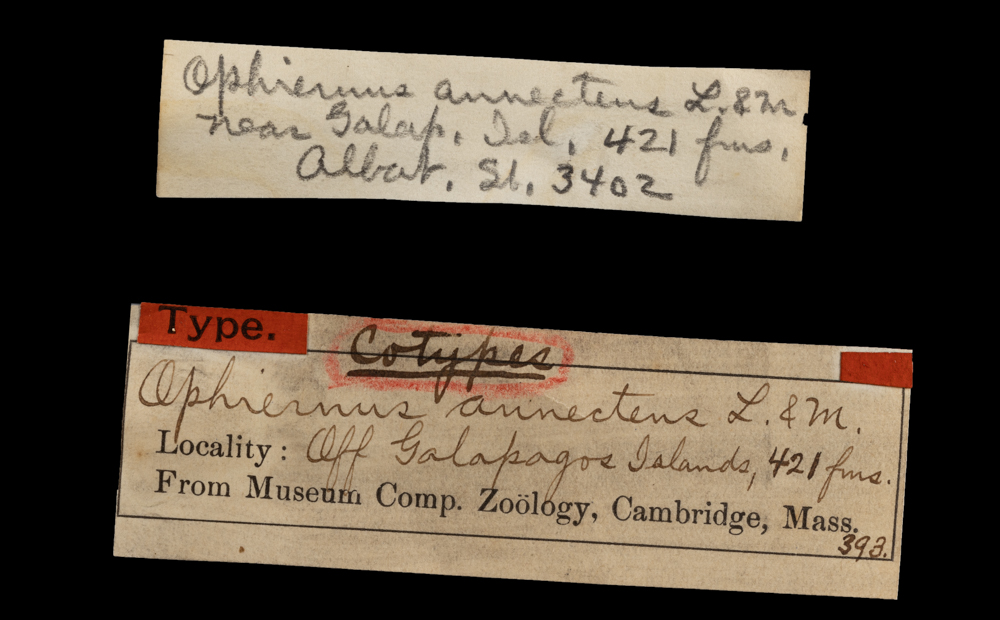 Ophiernus annectens L. & M.
near Galap. Isl. 421 fms.
Albat. St. 3402
Type.
Cotypes
Ophiernus annectens L. & M.
Locality: Off Galapagos Islands, 421 fms.
From Museum Comp. Zoölogy, Cambridge, Mass.
393.